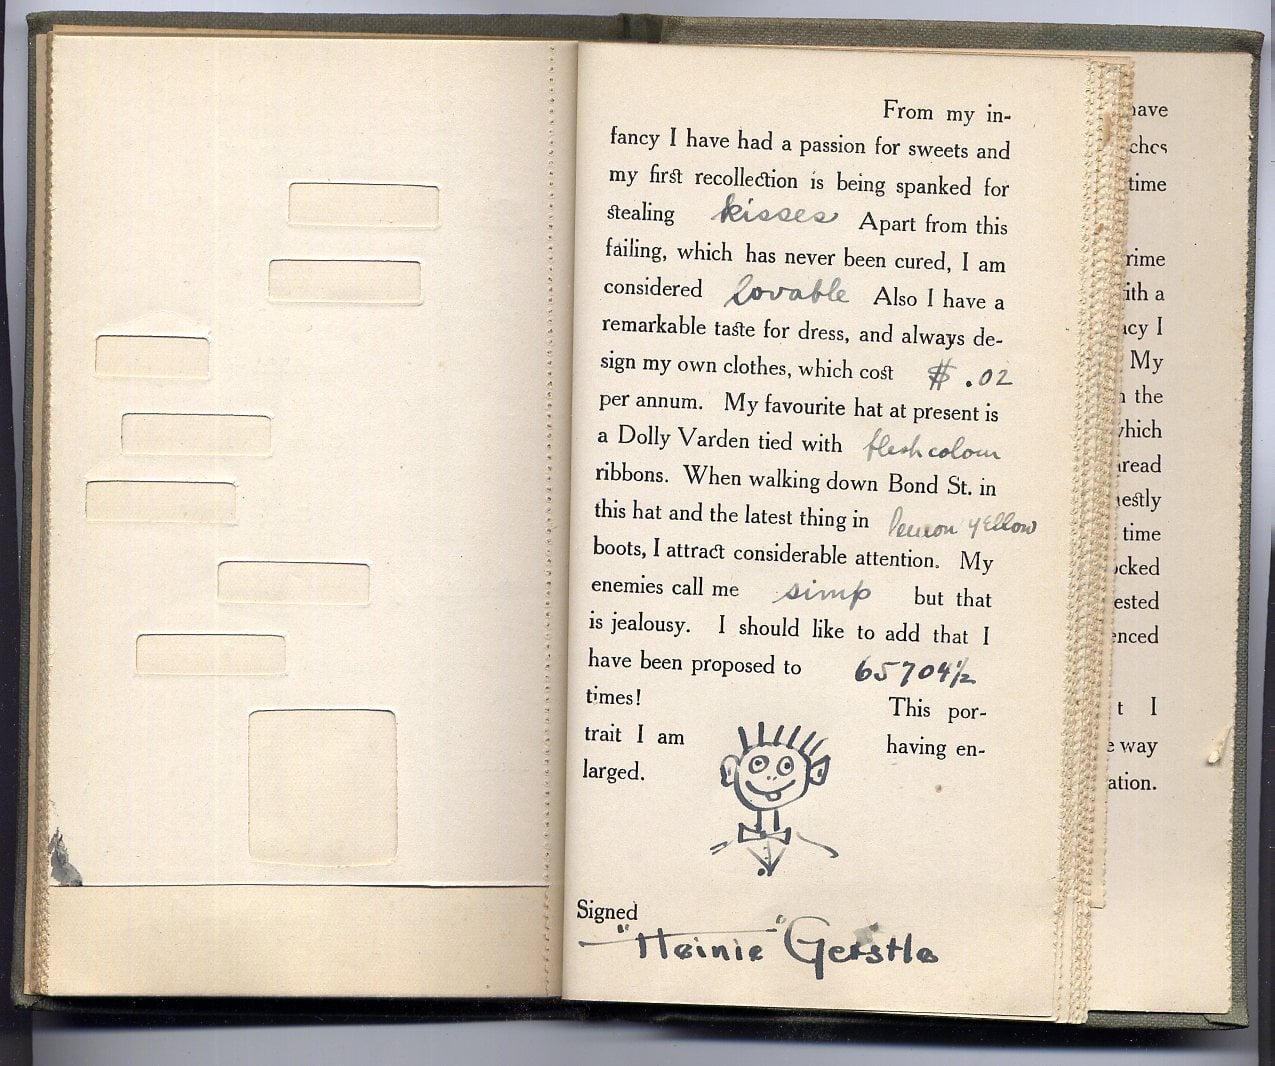 From my in-
fancy I have had a passion for sweets and
my first recollection is being spanked for
stealing kisses Apart from this
failing, which has never been cured, I am
considered lovable Also I have a
remarkable taste for dress, and always de-
sign my own clothes, which cost $ .02
per annum. My favourite hat at present is
a Dolly Varden tied with flesh colour
ribbons. When walking down Bond St. in
this hat and the latest thing in lemon yellow
boots, I attract considerable attention. My
enemies call me simp but that
is jealousy. I should like to add that I
have been proposed to 65704½
times! This por-
trait I am having en-
larged.
Signed
"Heinie" Gerstle
have
ches
time
rime
ith a
acy I
My
the
which
read
estly
time
ocked
ested
enced
t I
e way
ation.